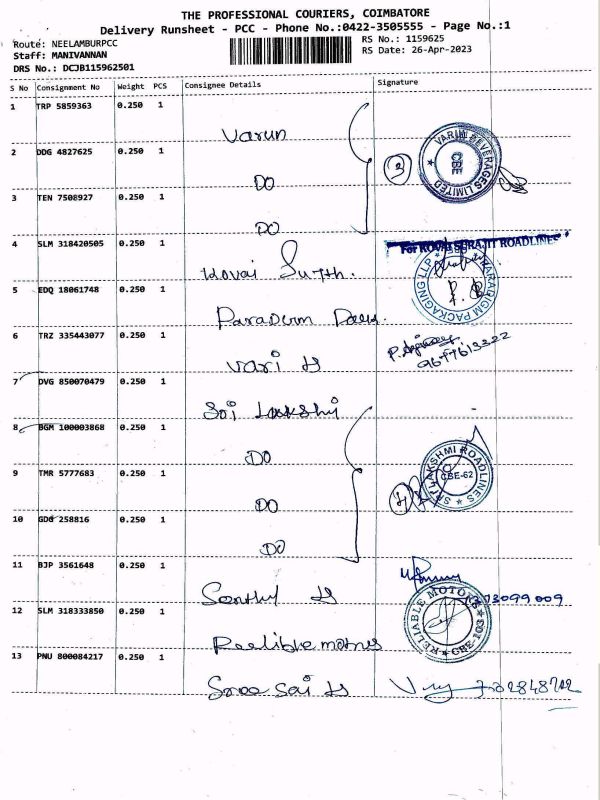 THE PROFESSIONAL COURIERS, COIMBATORE
Delivery Runsheet - PCC - Phone No.:0422-3505555 - Page No.:1
Route: NEELAMBURPCC
RS No.: 1159625
Staff: MANIVANNAN
RS Date: 26-Apr-2023
DRS No.: DCJB115962501
S No Consignment No Weight PCS Consignee Details Signature
1 TRP 5859363 0.250 1
Varun
2 DDG 4827625 0.250 1
DO
3 TEN 7508927 0.250 1
DO
3
VARUN BEVERAGES LIMITED
CBE
4 SLM 318420505 0.250 1
For KOVAI SURAJIT ROADLINES
Kovai
5 EDQ 18061748 0.250 1
PACKAGING LLP
6 TRZ 335443077 0.250 1
Vari
9677613322
7 DVG 850070479 0.250 1
Sri Lakshi
8 BGM 100003868 0.250 1
DO
9 TMR 5777683 0.250 1
DO
SRI LAKSHMI ROADLINES
CBE-62
10 GDG 258816 0.250 1
DO
11 BJP 3561648 0.250 1
12 SLM 318333850 0.250 1
Relible motors
RELIABLE MOTORS
CBE-103
13 PNU 800084217 0.250 1
Sree Sai